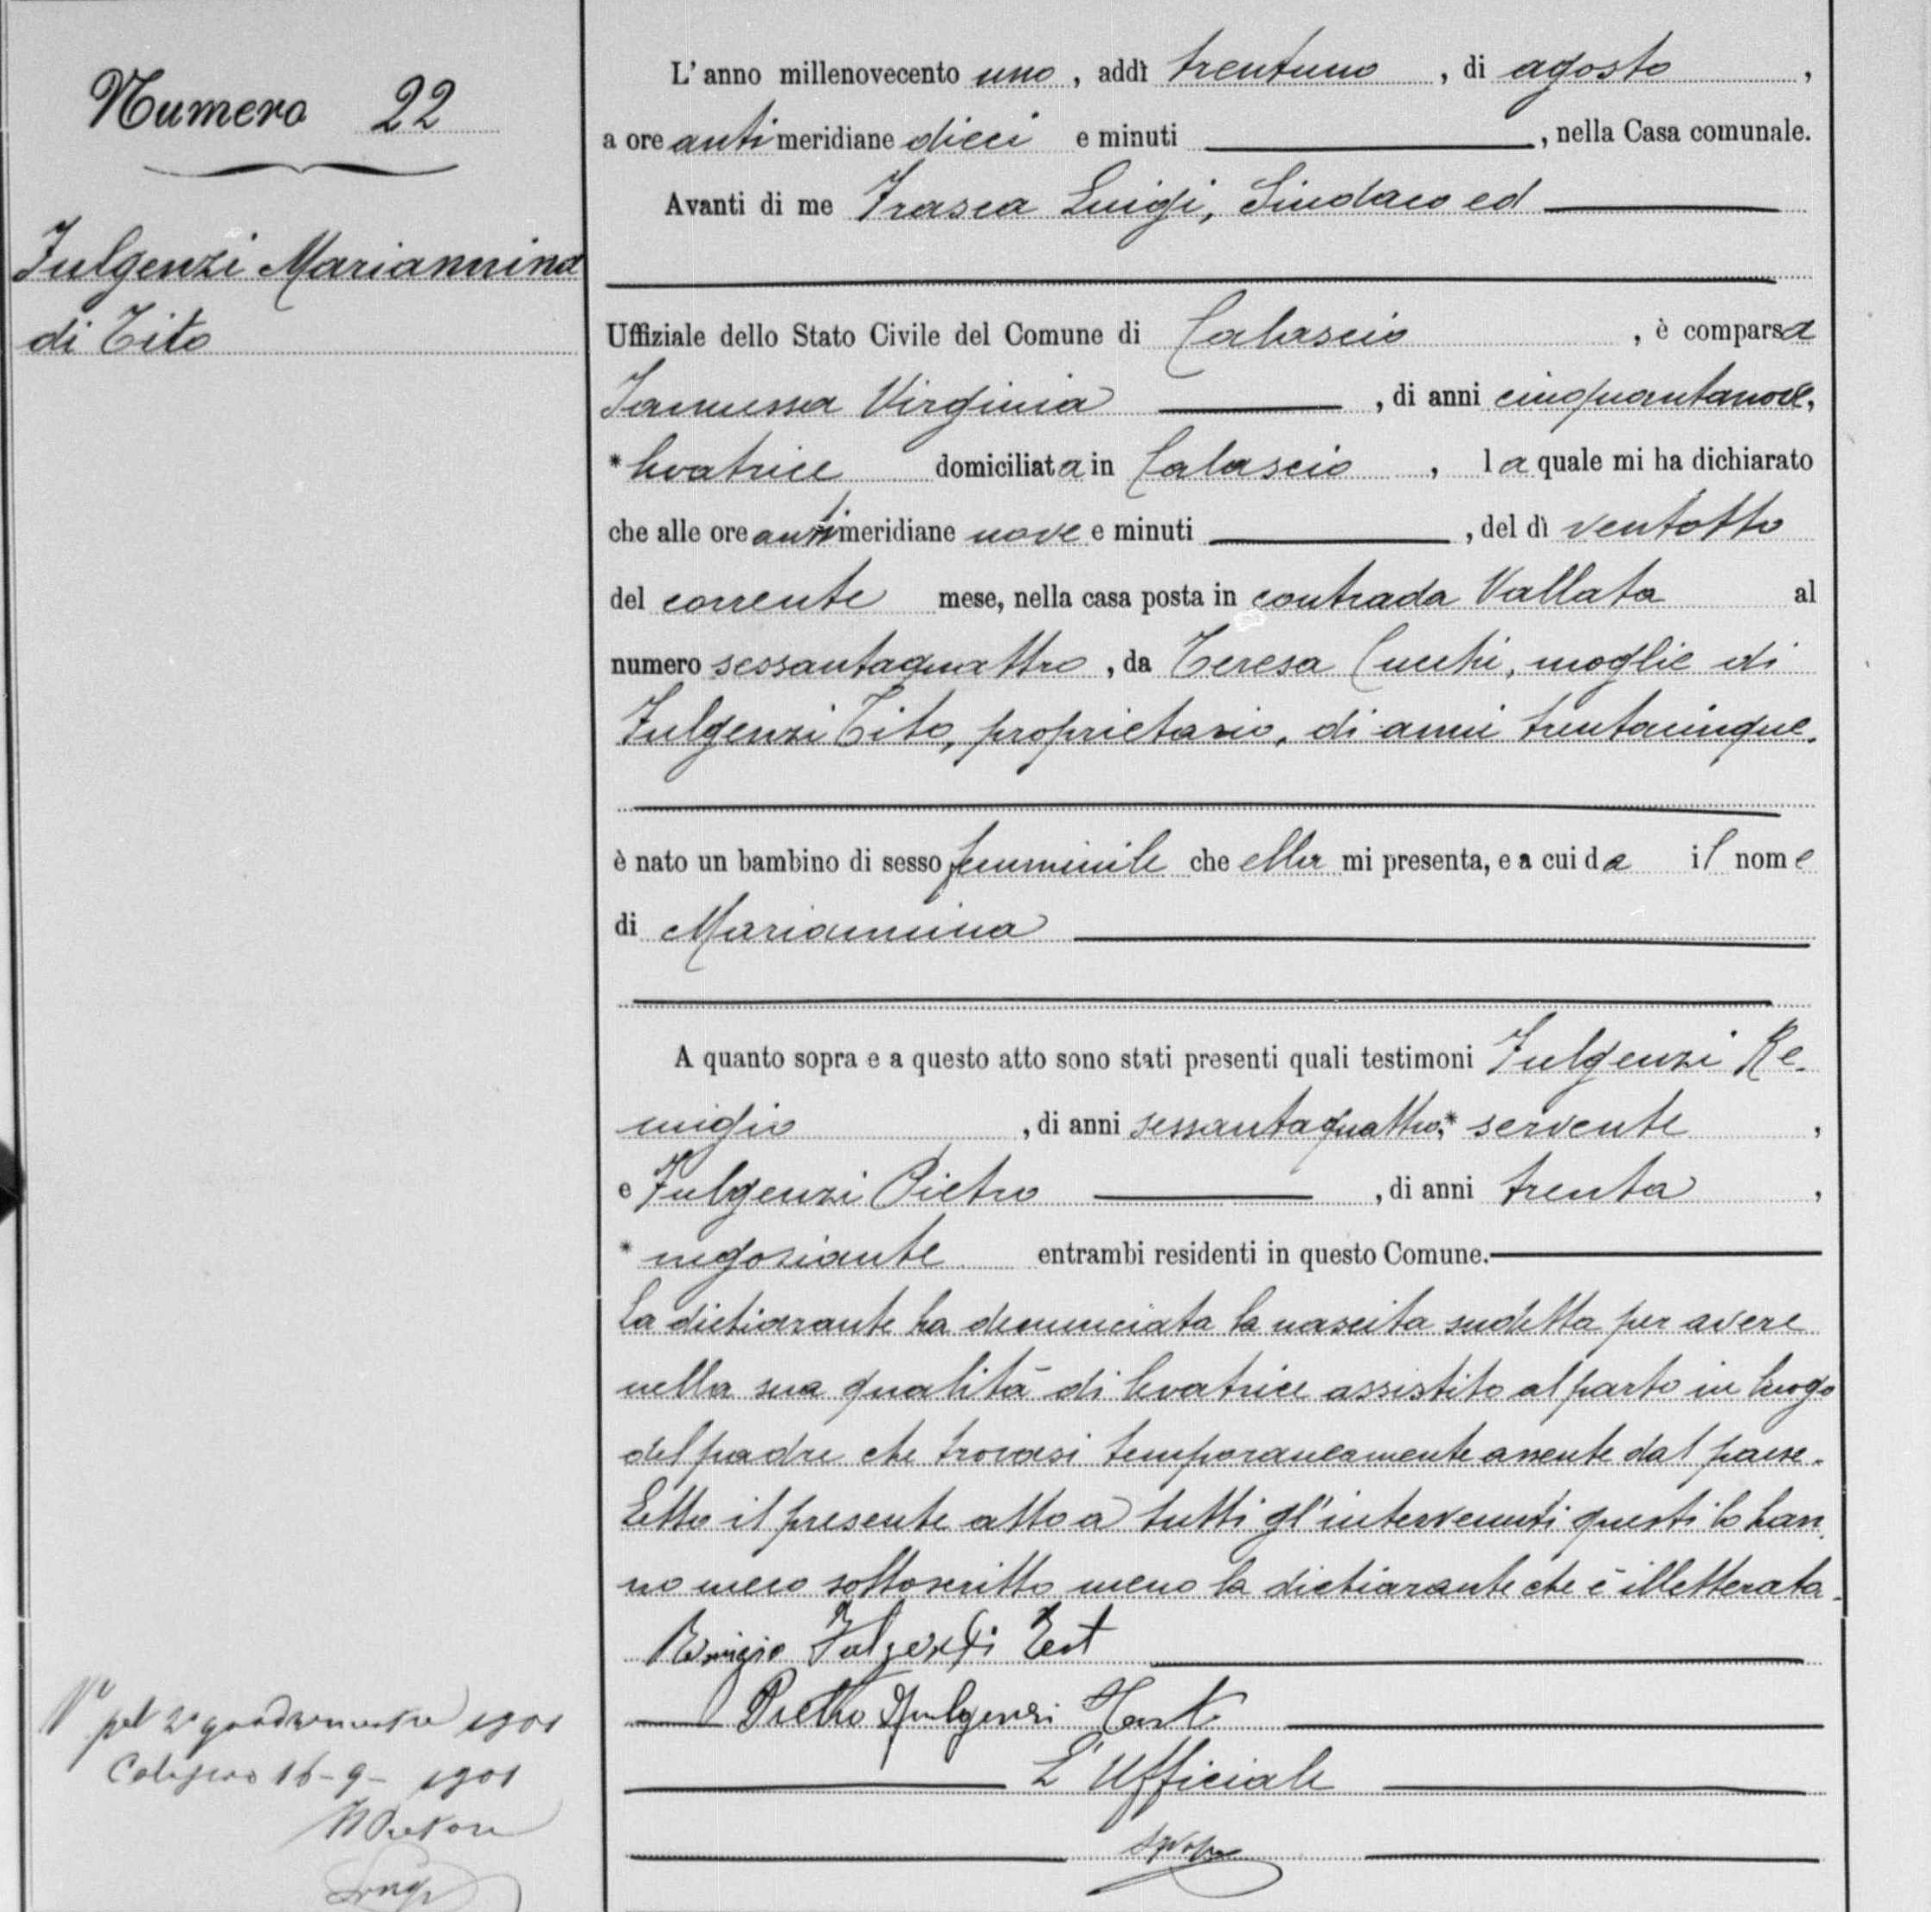 Numero 22
Fulgenzi Mariannina
di Tito
L'anno millenovecento uno, addì trentuno, di agosto,
a ore antimeridiane dieci e minuti , nella Casa comunale.
Avanti di me Frasca Luigi, Sindaco ed
Uffiziale dello Stato Civile del Comune di Calascio, è comparsa
Virginia , di anni cinquantanove,
*levatrice domiciliata in Calascio, la quale mi ha dichiarato
che alle ore antimeridiane nove e minuti , del dì ventotto
del corrente mese, nella casa posta in contrada Vallata al
numero sessantaquattro, da Teresa Cucchi, moglie di
Fulgenzi Tito, proprietario, di anni trentacinque.
è nato un bambino di sesso femminile che ella mi presenta, e a cui da il nome
di Mariannina
A quanto sopra e a questo atto sono stati presenti quali testimoni Fulgenzi Re-
migio, di anni sessantaquattro,* servente,
e Fulgenzi Pietro , di anni trenta,
*negoziante entrambi residenti in questo Comune.
La dichiarante ha denunciata la nascita sudetta per avere
nella sua qualità di levatrice assistito al parto in luogo
del padre che trovasi temporaneamente assente dal paese.
Letto il presente atto a tutti gl'intervenuti questi lo han-
no meco sottoscritto meno la dichiarante che è illetterata.
Remigio Fulgenzi Test
Pietro Fulgenzi Test
L'Ufficiale
Vº pel 2º quadrimestre 1901
16-9-1901
Il Pretore